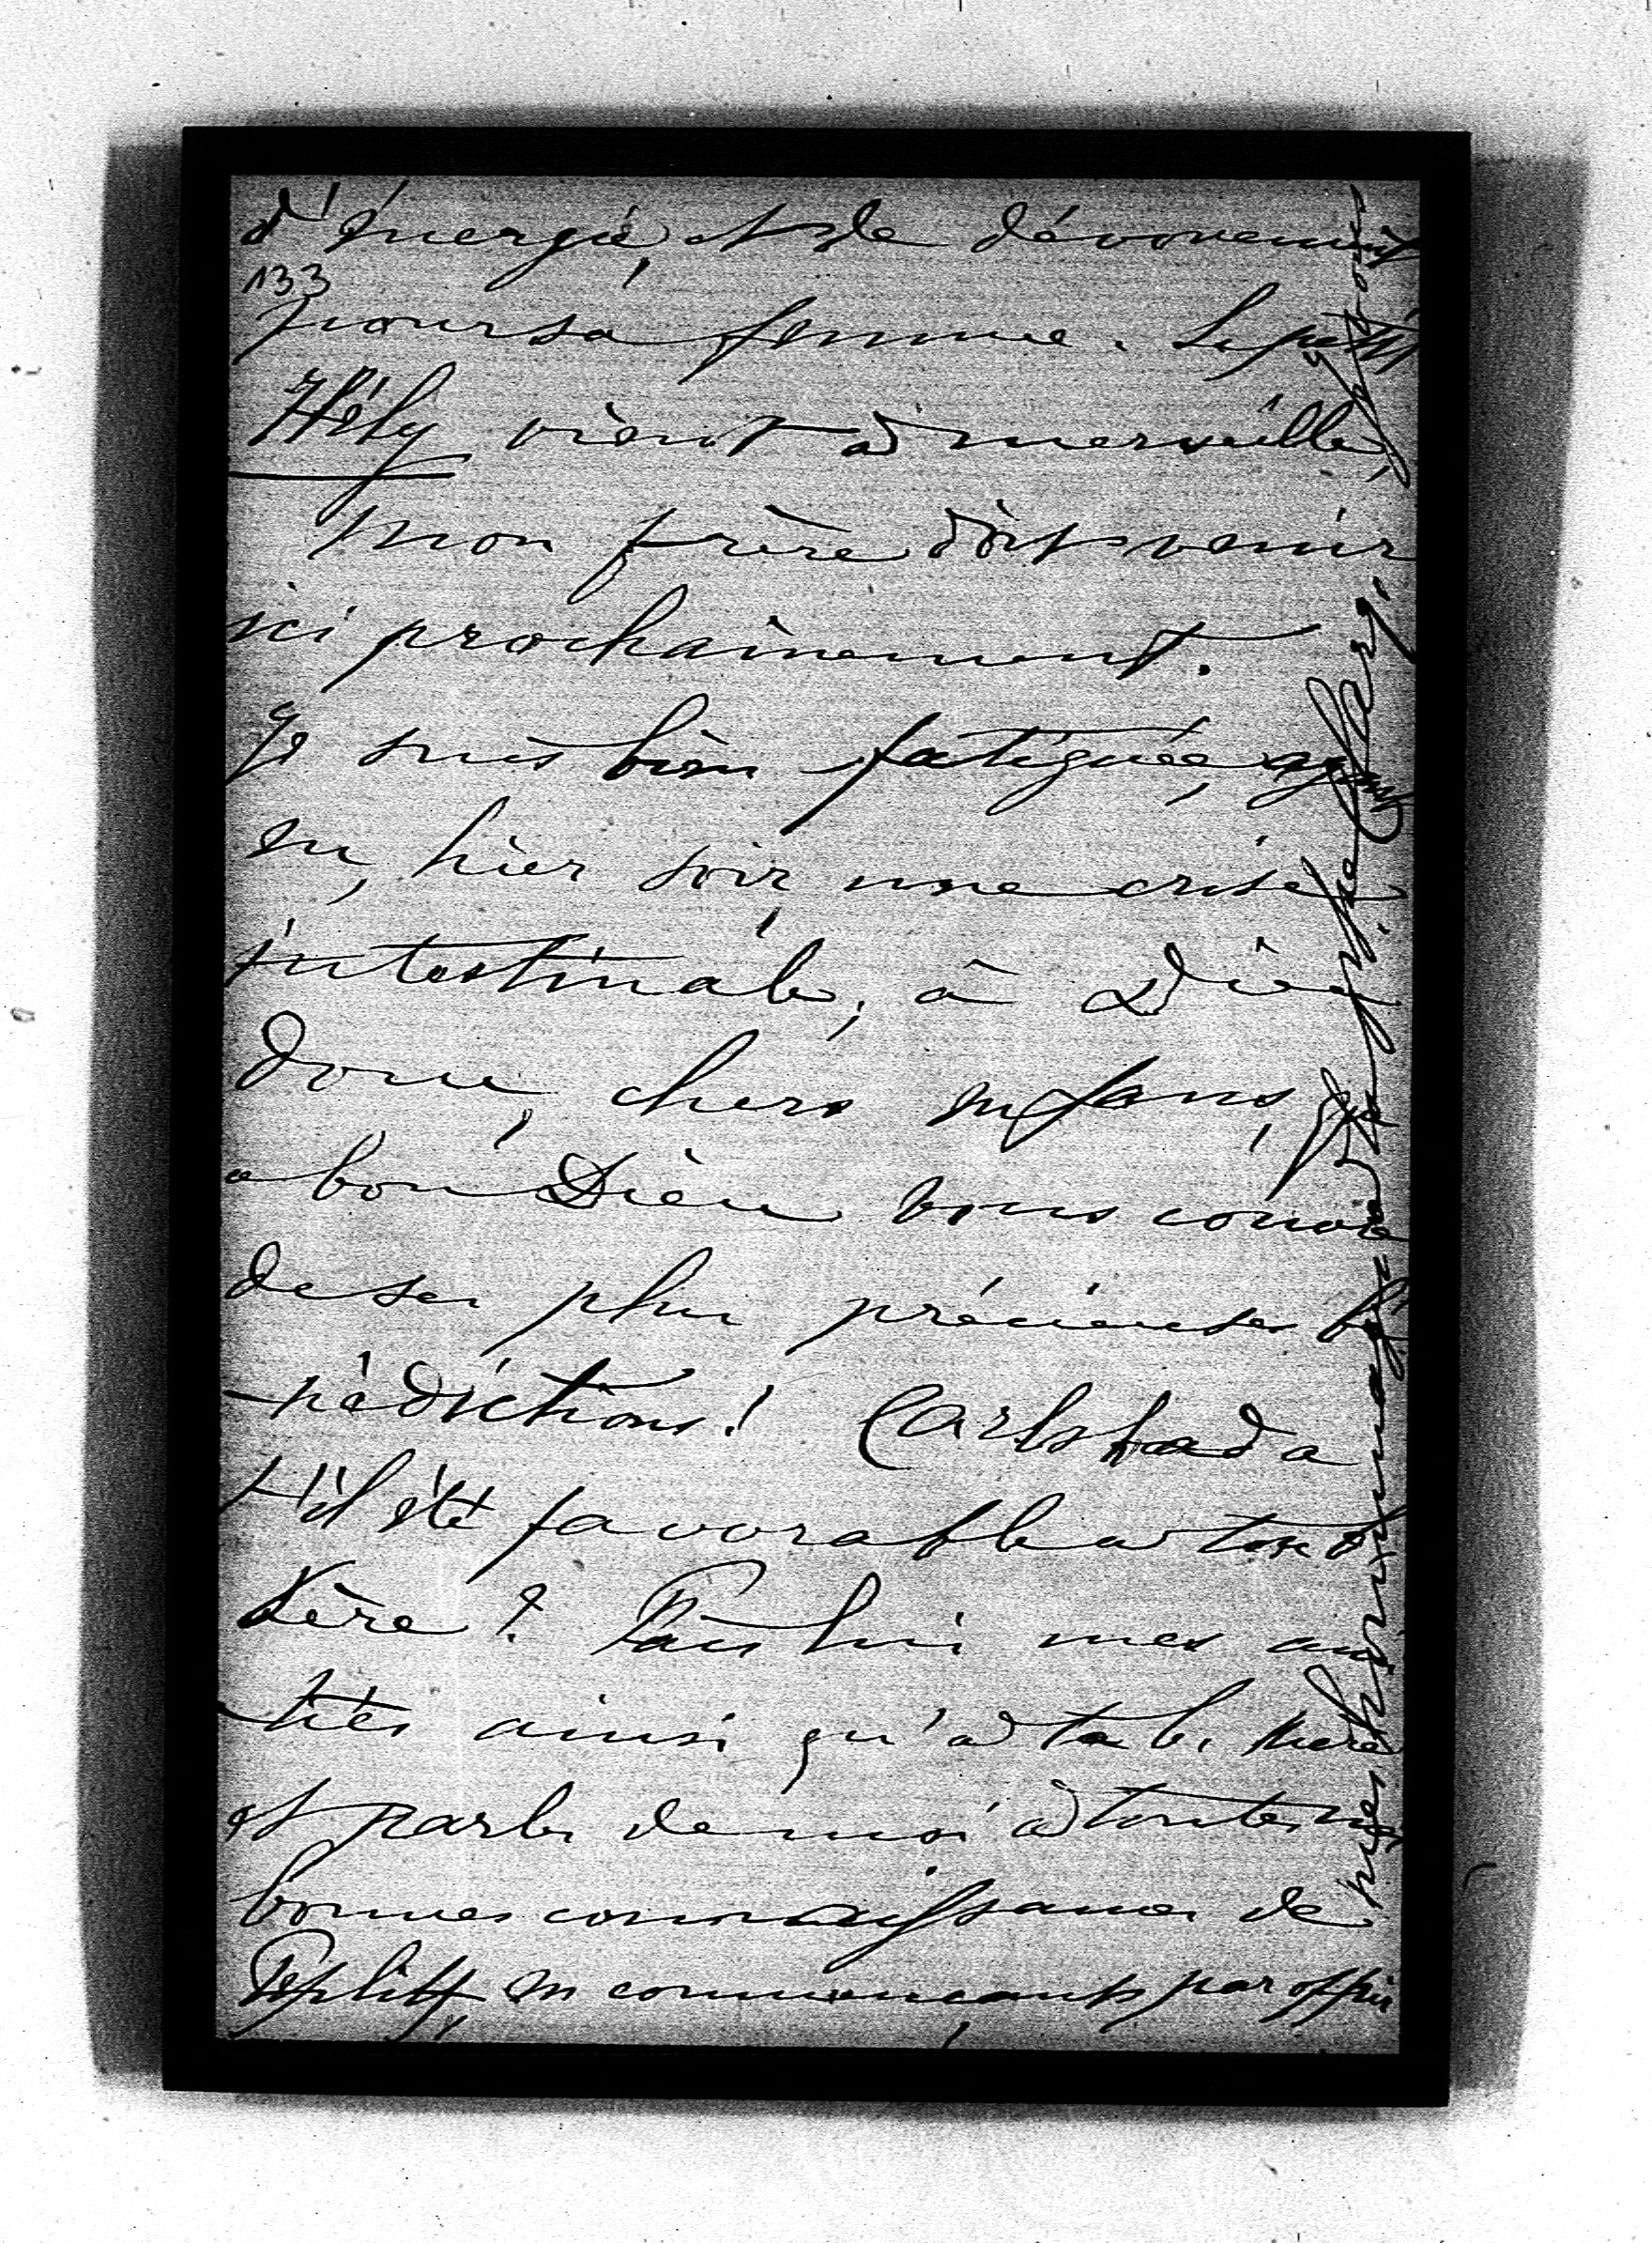 d'énergie, et de dévouement
133
pour sa femme. Le petit
Hély vient à merveille,
Mon frère doit venir
ici prochainement.
Je suis bien fatiguée, ayant
eu, hier soir une crise
intestinale, à Dieu
donc, chers enfans,
bon Dieu vous
de ses plus précieuses bé
-nédictions! Carlsbad a
t'il été favorable à ton b.
Père? Fais lui mes ami
-tiés ainsi qu'à ta b. Mère
et parle de moi à toutes mes
bonnes connaissances de
Teplitz, en commençant, par offrir
mes hommages à la Clary.